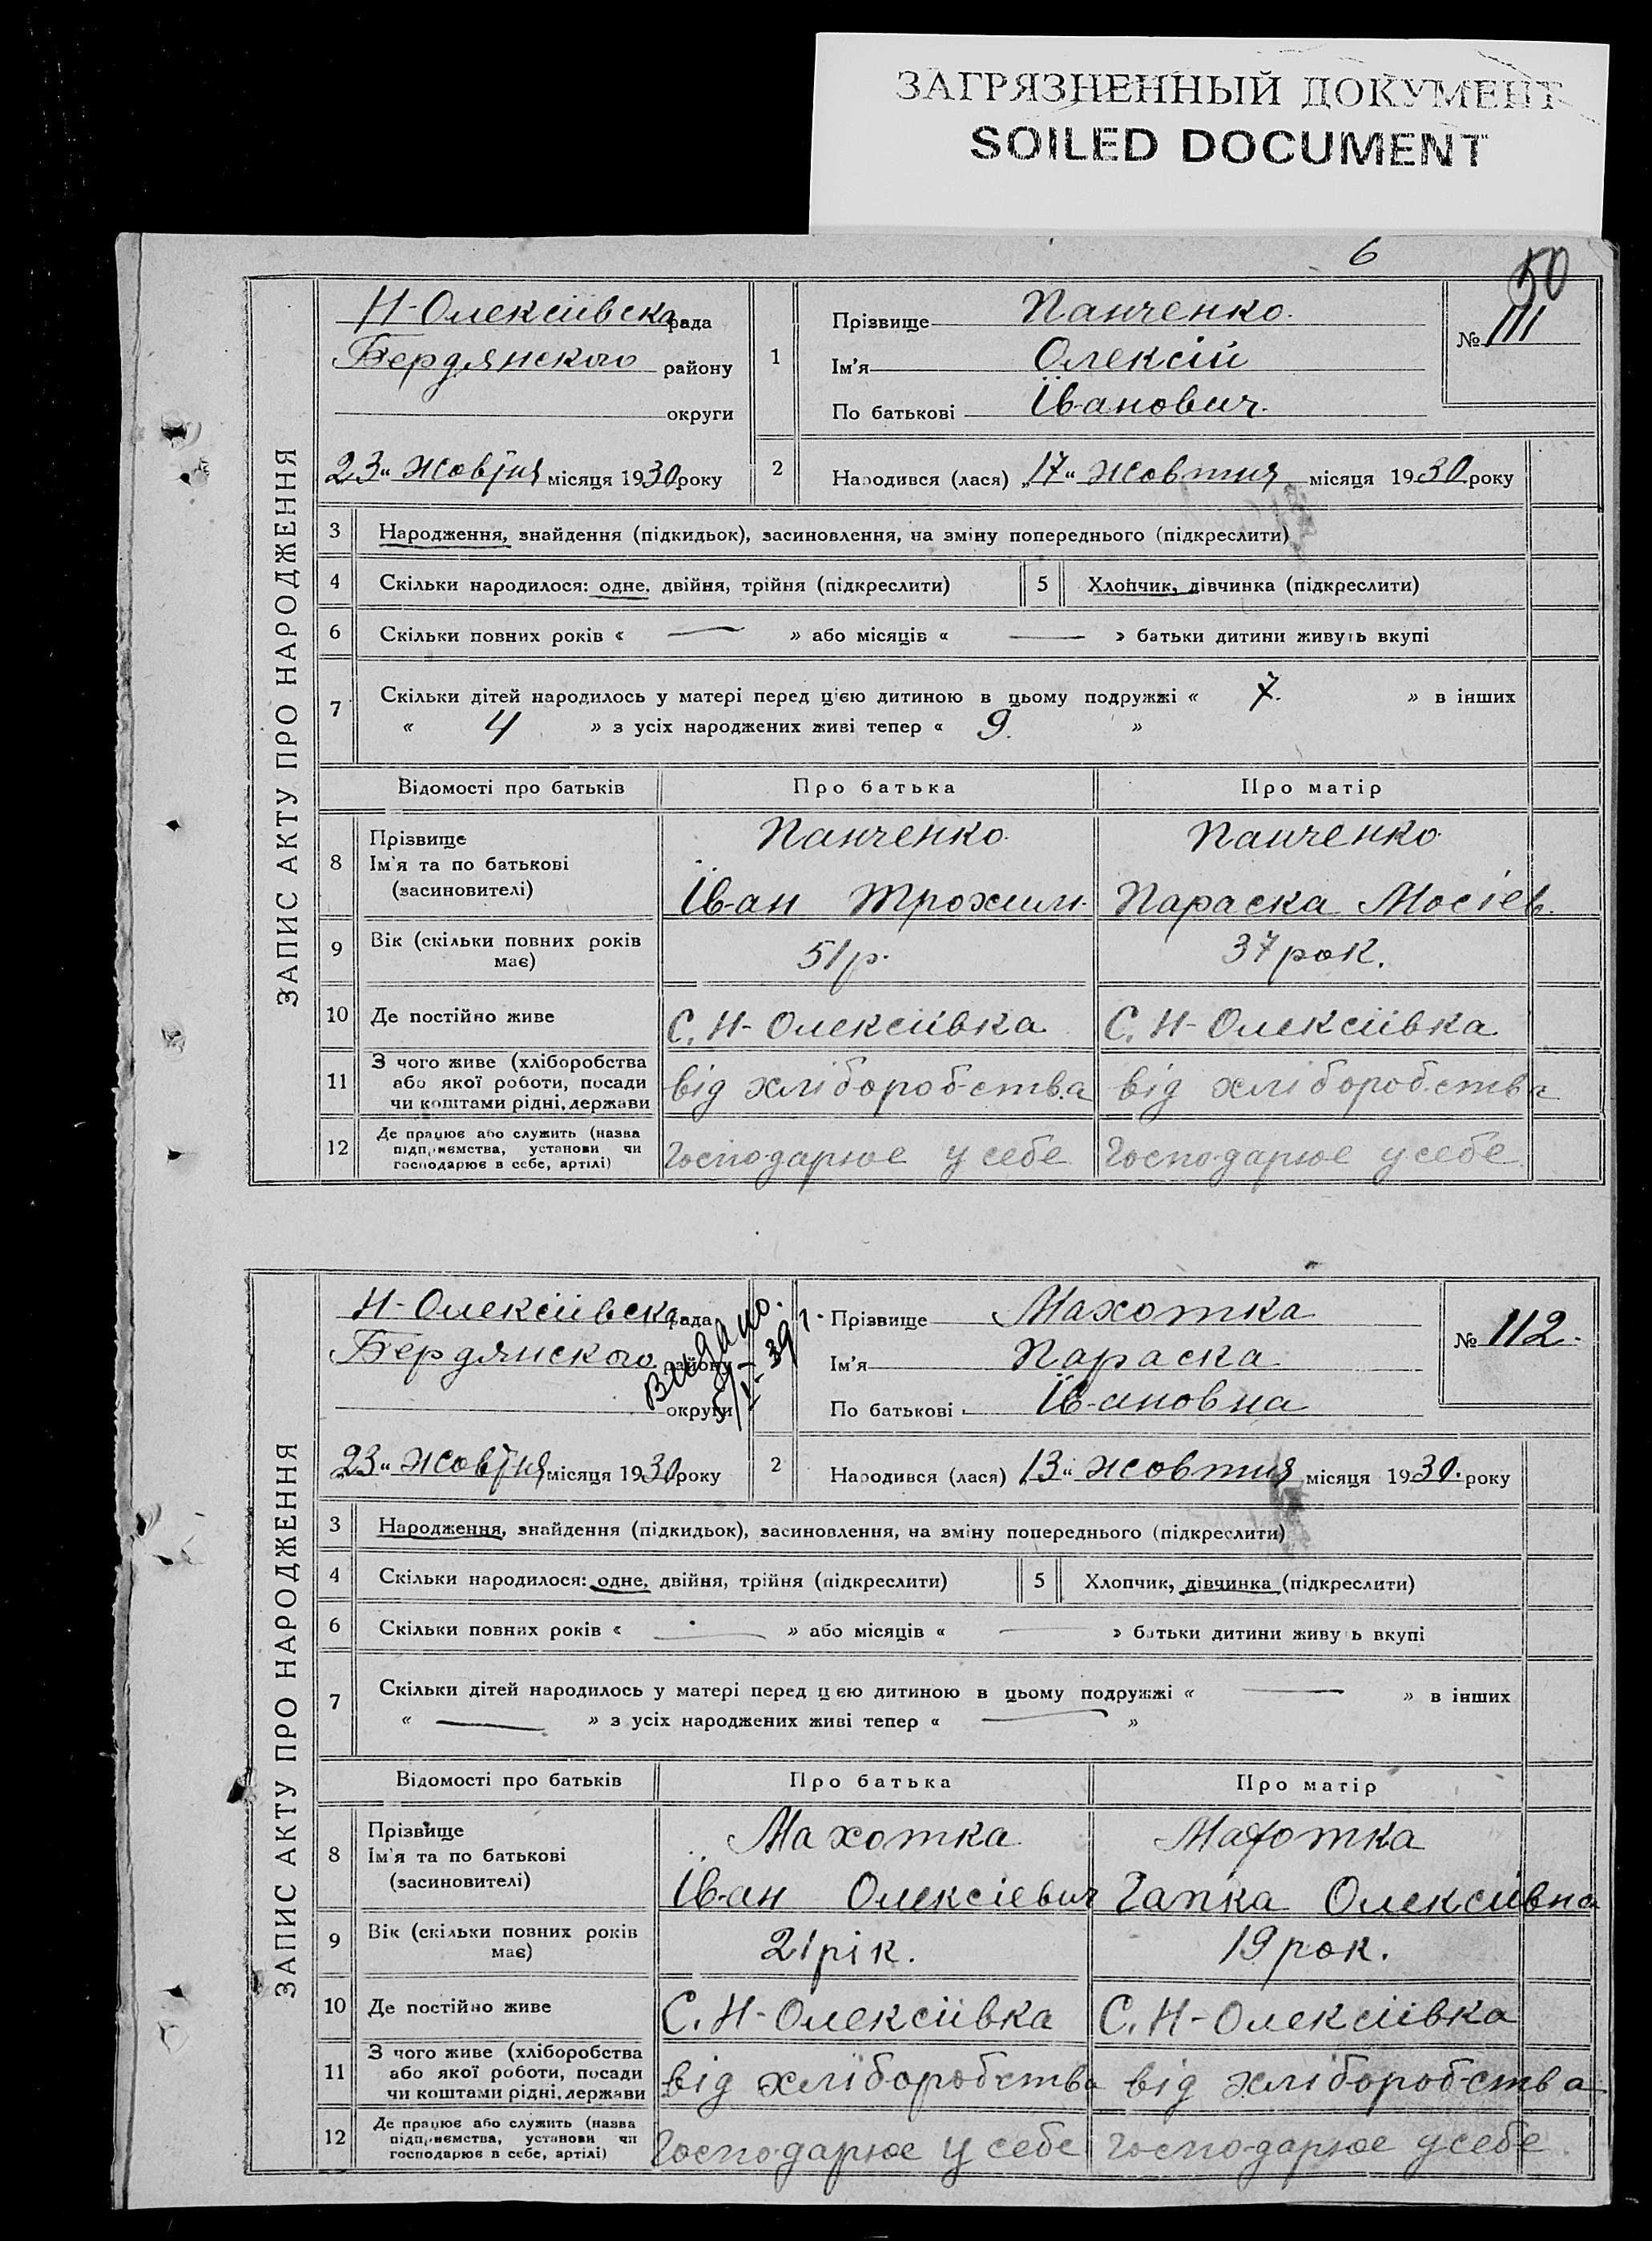 ЗАГРЯЗНЕННЫЙ ДОКУМЕНТ
SOILED DOCUMENT
6
50
ЗАПИС АКТУ ПРО НАРОДЖЕННЯ
Н-Олексіївска рада
Бердянского району
округи
23 „ жовтня місяця 1930 року
1
Прізвище Панченко.
Ім'я Олексій
По батькові Іванович.
№ 111
2
Народився (лася) „17“ жовтня місяця 1930 року
3 Народження, знайдення (підкидьок), засиновлення, на зміну попереднього (підкреслити)
4 Скільки народилося: одне, двійня, трійня (підкреслити) 5 Хлопчик, дівчинка (підкреслити)
6 Скільки повних років « — » або місяців « — » батьки дитини живуть вкупі
7 Скільки дітей народилось у матері перед цією дитиною в цьому подружжі « 7. » в інших
« 4 » з усіх народжених живі тепер « 9. »
Відомості про батьків Про батька Про матір
8 Прізвище Панченко. Панченко.
Ім'я та по батькові
(засиновителі) Іван Трохим. Параска Мосієв.
9 Вік (скільки повних років має) 51 р. 37 рок.
10 Де постійно живе С. Н-Олексіївка С. Н-Олексіївка
11 З чого живе (хліборобства
або якої роботи, посади
чи коштами рідні, держави від хліборобства від хліборобства
12 Де працює або служить (назва
підприємства, установи чи
господарює в себе, артілі) Господарює у себе Господарює у себе
ЗАПИС АКТУ ПРО НАРОДЖЕННЯ
Н-Олексіївска рада
Бердянского району
округи
Видано.
23 „ жовтня місяця 1930 року
1
Прізвище Махотка
Ім'я Параска
По батькові Івановна
№ 112.
2
Народився (лася) „13“ жовтня місяця 1930. року
3 Народження, знайдення (підкидьок), засиновлення, на зміну попереднього (підкреслити)
4 Скільки народилося: одне, двійня, трійня (підкреслити) 5 Хлопчик, дівчинка (підкреслити)
6 Скільки повних років « — » або місяців « — » батьки дитини живуть вкупі
7 Скільки дітей народилось у матері перед цією дитиною в цьому подружжі « — » в інших
« — » з усіх народжених живі тепер « — »
Відомості про батьків Про батька Про матір
8 Прізвище Махотка Махотка
Ім'я та по батькові
(засиновителі) Іван Олексієвич Гапка Олексіївна
9 Вік (скільки повних років має) 21 рік. 19 рок.
10 Де постійно живе С. Н-Олексіївка С. Н-Олексіївка
11 З чого живе (хліборобства
або якої роботи, посади
чи коштами рідні, держави від хліборобства від хліборобства
12 Де працює або служить (назва
підприємства, установи чи
господарює в себе, артілі) Господарює у себе Господарює у себе